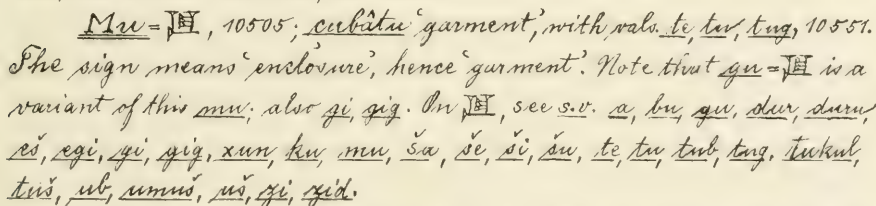 Mu = 𒆪, 10505; çubâtu 'garment', with vals. te, tu, tug, 10551.
The sign means 'enclosure', hence 'garment'. Note that gu = 𒆪 is a
variant of this mu; also gi, gig. On 𒆪, see s.v. a, bu, gu, dur, duru,
eš, egi, gi, gig, xun, ku, mu, ša, še, ši, šu, te, tu, tub, tug, tukul,
tuš, ub, umuš, uš, zi, zid.